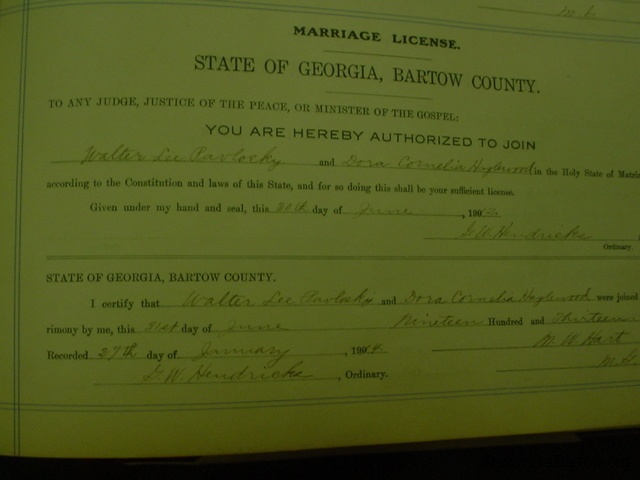 MARRIAGE LICENSE.
STATE OF GEORGIA, BARTOW COUNTY.
TO ANY JUDGE, JUSTICE OF THE PEACE, OR MINISTER OF THE GOSPEL:
YOU ARE HEREBY AUTHORIZED TO JOIN
Walter Lee Pavlosky and Dora Cornelia in the Holy State of Matri
according to the Constitution and laws of this State, and for so doing this shall be your sufficient license.
Given under my hand and seal, this day of June, 190
G. W. Hendricks
Ordinary.
STATE OF GEORGIA, BARTOW COUNTY.
I certify that Walter Lee Pavlosky and Dora Cornelia Haglewood were joined
rimony by me, this 21st day of June Nineteen Hundred and Thirteen
Recorded 27th day of January, 1904. M. W. Hart
G. W. Hendricks, Ordinary. M. G.